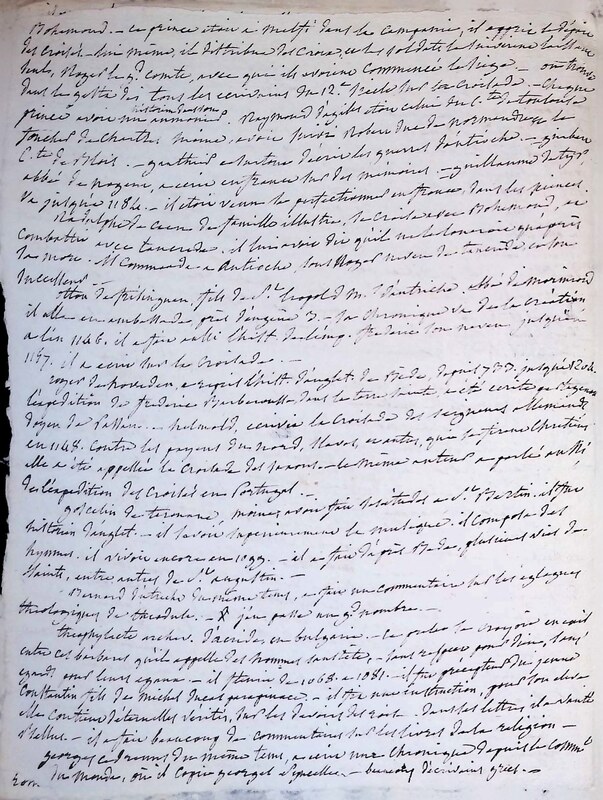 Bohemond. - ce prince etoit a Melfi dans la campanie, il apprit le depart
des croisés - lui même, il distribue des croix, et les soldats le suivirent laissant
seul, Roger le gd comte, avec qui ils avoient commencé le siege. - on trouve
dans le gesta dei tous les ecrivains du 12e siecle sur la croisade. - chaque
prince avoit son historien. Raymond d'agiles etoit celui du Cte de toulouse
foucher de Chartres même, avoit suivi Robert duc de normandie, le
Cte de Blois. - gauthier a surtout decrit les guerres d'antioche. - guibert
abbé de nogent, a ecrit en france sur des memoires. - guillaume de tyr
va jusqu'en 1184. - il etoit venu se perfectionner en france, dans les sciences.
Radulphe de caen de famille illustre, se croisa avec Bohemond, et
combattit avec tancrede. il lui avoit dit qu'il ne le loueroit qu'après
sa mort. Il commanda a Antioche, sous Roger neveu de tancrede, et son
successeur.
Otton de frisinguen, fils de St leopold M. d'autriche, abbé de morimond
il alla en ambassade près d'eugene 3. - sa chronique va de la création
a l'an 1146. il a fait aussi l'hist. de l'emp. frederic son neveu jusqu'en
1157. il a ecrit sur la croisade. -
roger de hoveden, a repris l'hist. d'anglet. de Bede, depuis 733. jusqu'a 1202.
l'expedition de frederic Barberousse dans la terre sainte, a été ecrite par tageno
doyen de Passau. - helmold, ecrivit la croisade des seigneurs allemands
en 1148. contre les payens du nord, slaves, et autres, que se firent chretiens
elle a été appellée la croisade des saxons. - le même auteur a parlé aussi
de l'expedition des croisés en Portugal. -
goscelin de terouane, moine, avoit fait ses études a St Bertin. il fut
historien d'anglet. - il savoit superieurement la musique. il composa des
hymnes. il vivoit encore en 1099. - il a fait d'après Beda, plusieurs vies de
saints, entre autres de St augustin. -
Bernard d'utrecht du même tems, a fait un commentaire sur les eglogues
theologiques de theodule. - j'en passe un gd nombre. -
theophylacte archev. d'acride, en bulgarie. - ce poste le croyoit en exil
entre ces barbares qu'il appelle des hommes sans tête, - sans respect pour dieu, sans
egards pour leurs egaux. - il fleurit de 1068. a 1081. - il fut precepteur du jeune
Constantin fils de michel ducas parapinace. - il fit une instruction, pour son eleve
elle contient d'eternelles vérités, sur les devoirs des rois. Dans ses lettres il a vanté
Psellus. - il a fait beaucoup de commentaires sur les livres de la religion -
georges cedrenus du même tems, a ecrit une chronique depuis le commt
du monde, où il copie georges syncelle. - beaucoup d'ecrivains grecs. -